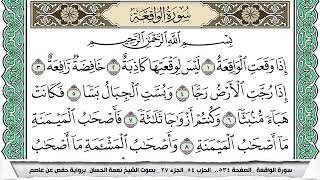 سورة الواقعة
بسم الله الرحمن الرحيم
إِذَا وَقَعَتِ الْوَاقِعَةُ ١ لَيْسَ لِوَقْعَتِهَا كَاذِبَةٌ ٢ خَافِضَةٌ رَافِعَةٌ ٣
إِذَا رُجَّتِ الْأَرْضُ رَجًّا ٤ وَبُسَّتِ الْجِبَالُ بَسًّا ٥ فَكَانَتْ
هَبَاءً مُنْبَثًّا ٦ وَكُنْتُمْ أَزْوَاجًا ثَلَاثَةً ٧ فَأَصْحَابُ الْمَيْمَنَةِ
مَا أَصْحَابُ الْمَيْمَنَةِ ٨ وَأَصْحَابُ الْمَشْأَمَةِ مَا أَصْحَابُ
سورة الواقعة .. الصفحة ٥٣٤.. الحزب ٥٤ .. الجزء ٢٧ .. بصوت الشيخ نعمة الحسان.. برواية حفص عن عاصم